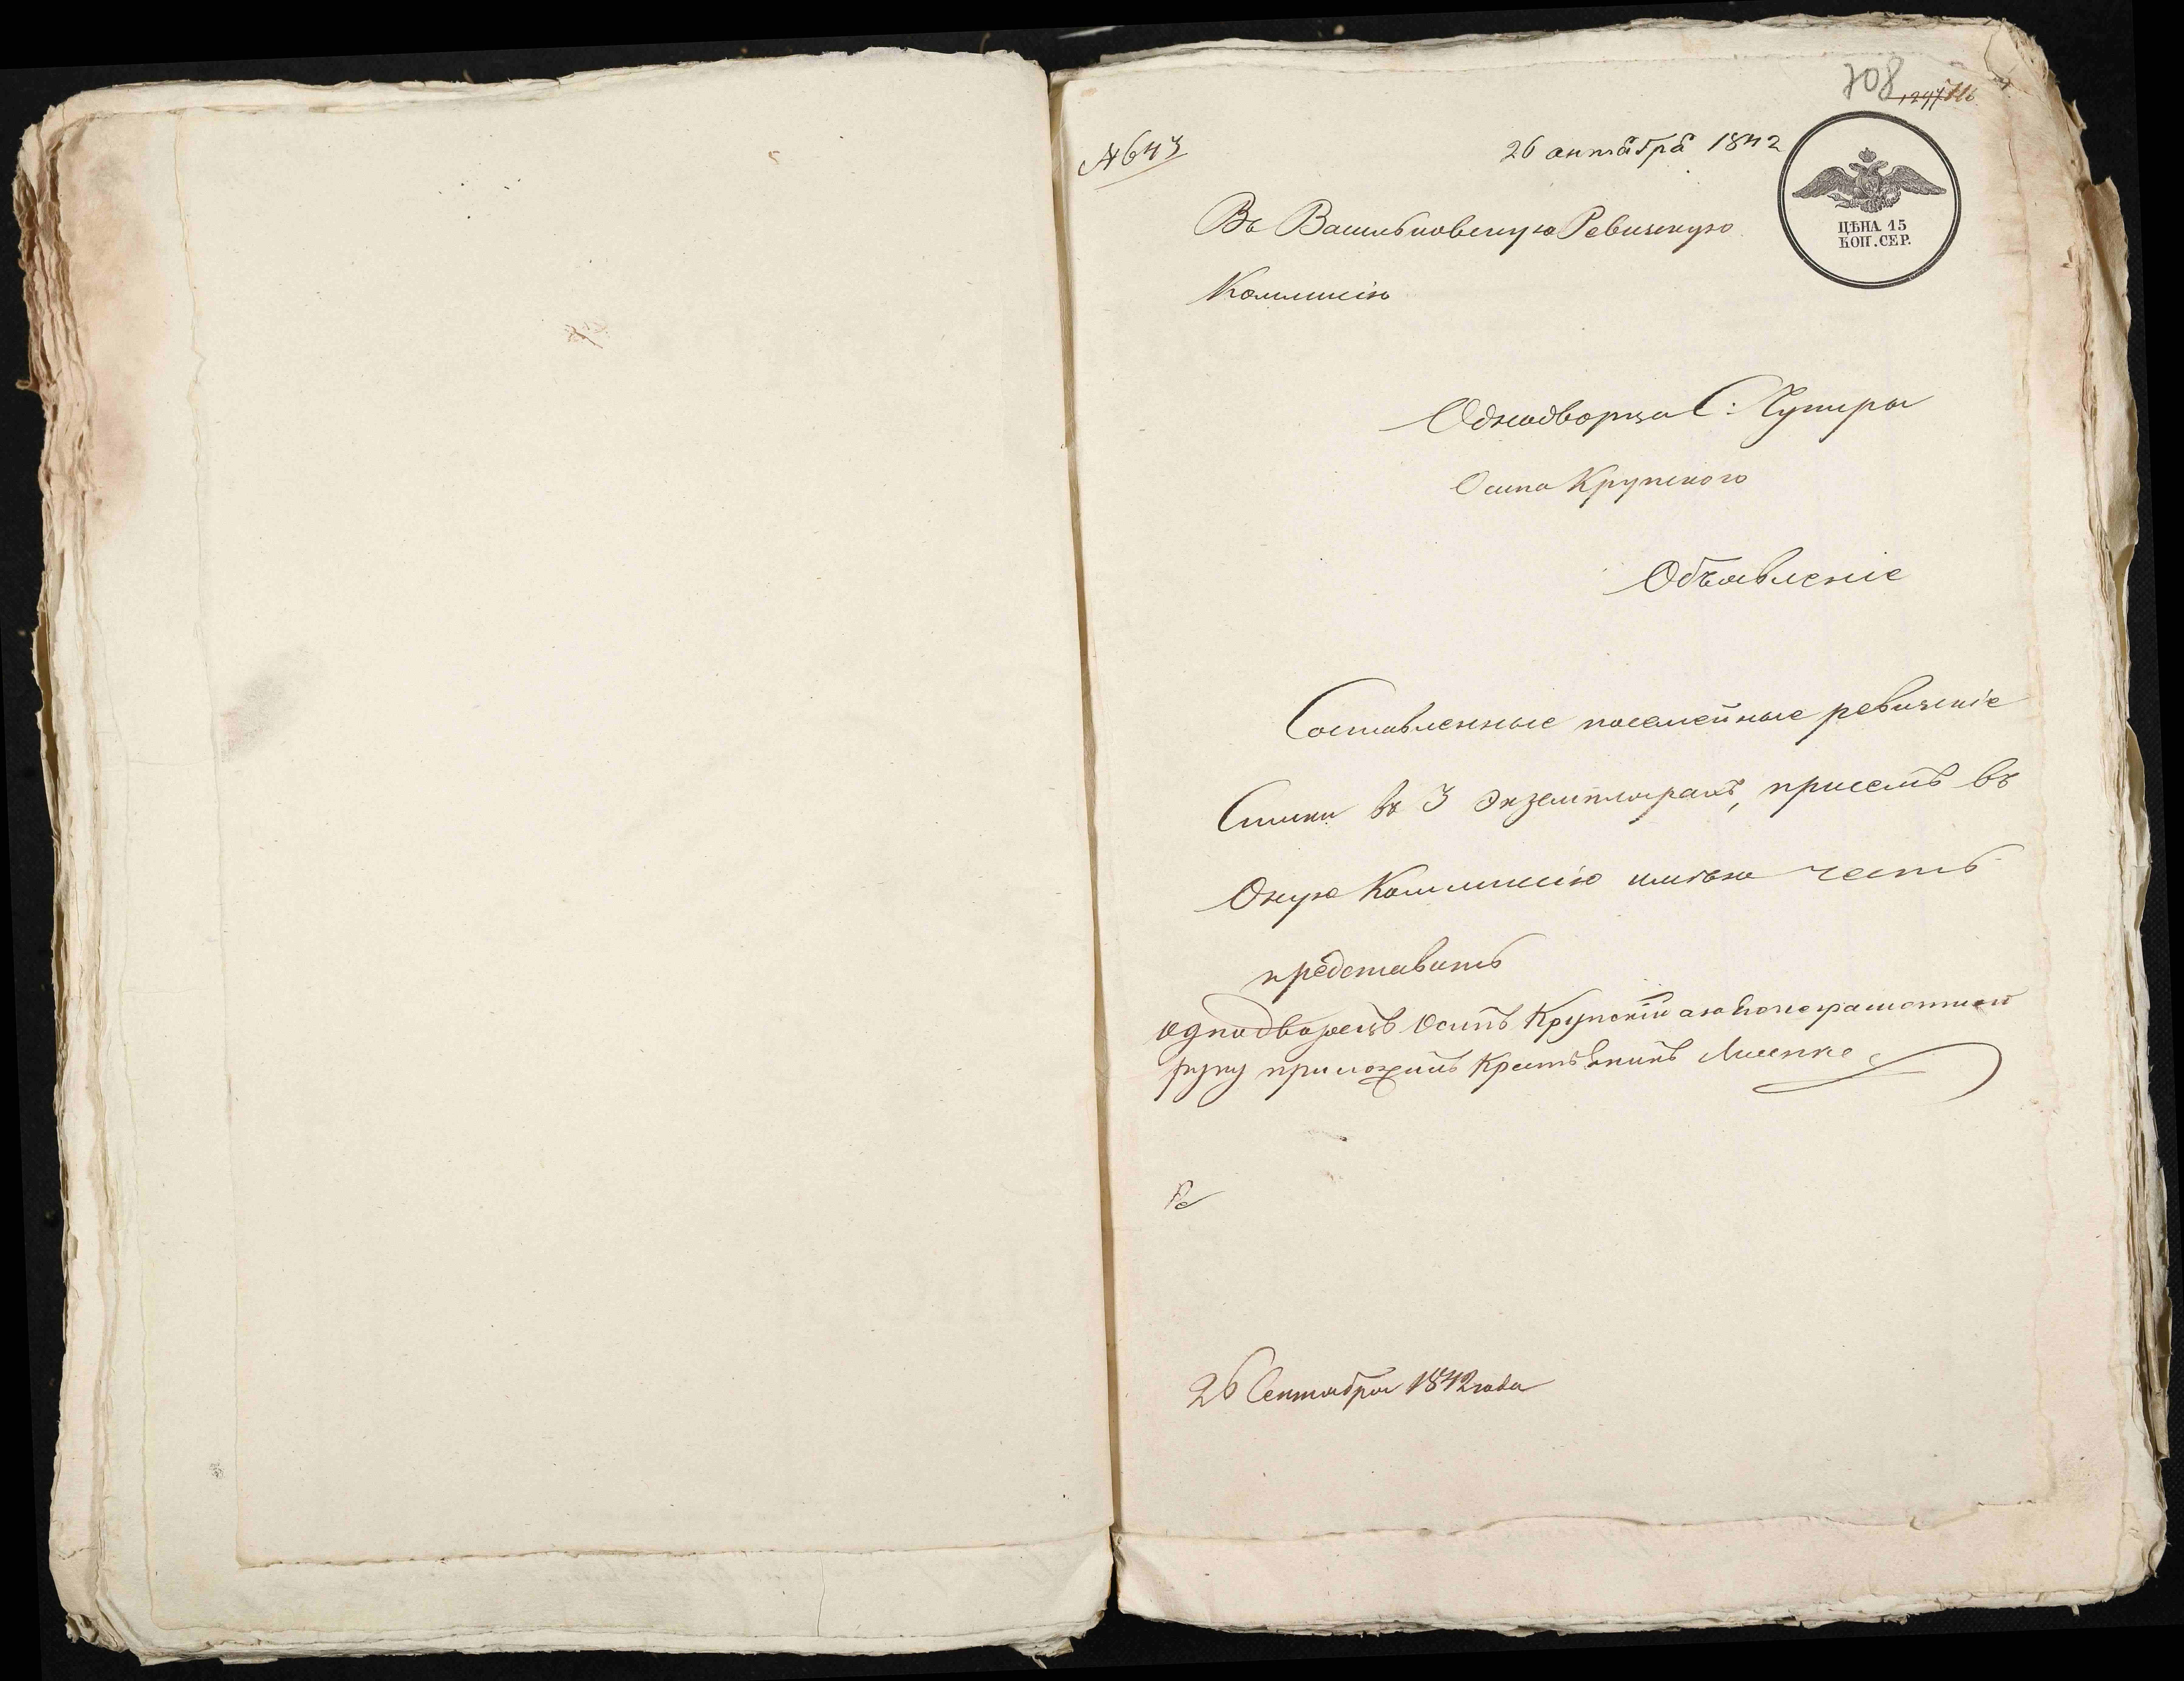 708
1297 116
№ 643
26 октября 1842
ЦѢНА 15
КОП. СЕР.
Въ Васильковскую Ревизскую
Коммисію
Однодворца С: Чупиры
Осипа Крупского
Объявленіе
Составленные посемейные ревизскіе
Списки въ 3 экземплярахъ, присемъ въ
Оную Коммиссію имѣю честь
представить
однодворецъ Осипъ Крупскій а за него неграмотного
руку приложилъ Крестьянинъ
26 Сентября 1842 года